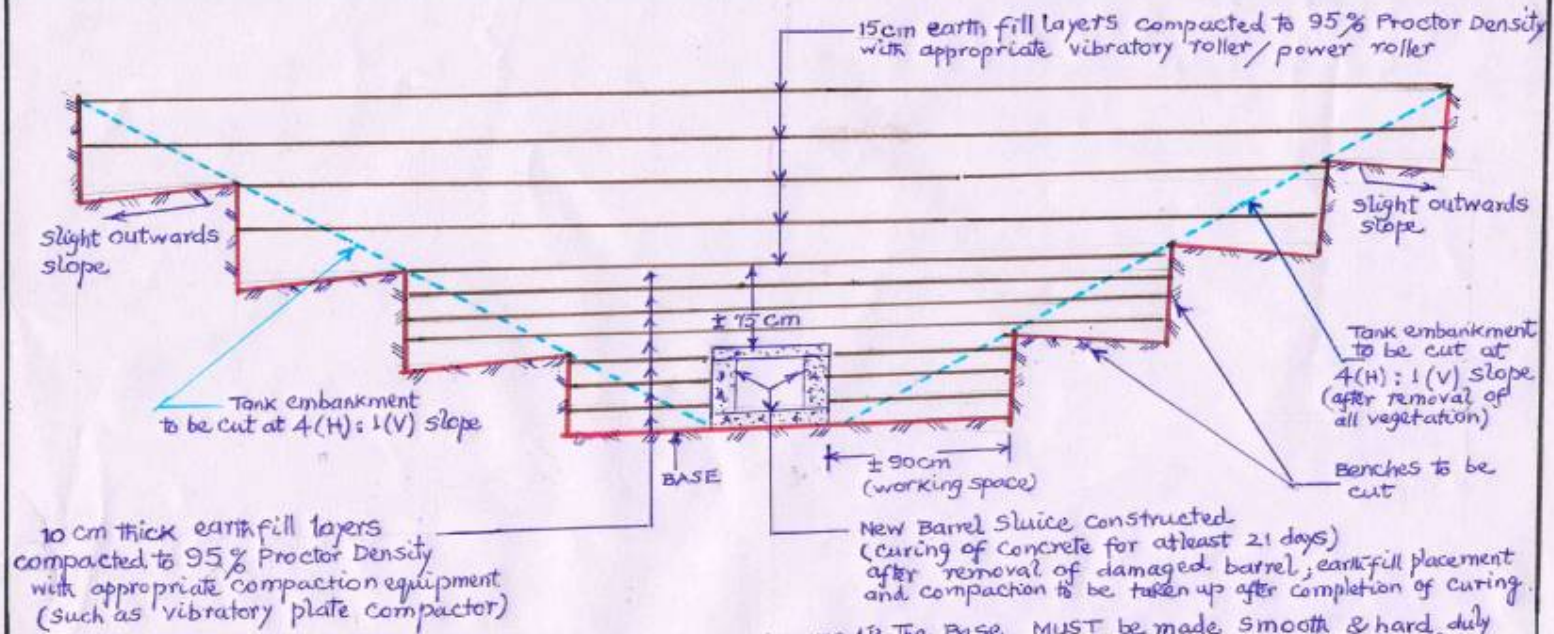 15cm earth fill layers compacted to 95% Proctor Density
with appropriate vibratory roller/power roller
Slight outwards
slope
Slight outwards
slope
± 75 cm
Tank embankment
to be cut at
4(H):1(V) slope
(after removal of
all vegetation)
Tank embankment
to be cut at 4(H):1(V) slope
BASE
± 90cm
(working space)
Benches to be
cut
10 cm thick earthfill layers
compacted to 95% Proctor Density
with appropriate compaction equipment
(such as vibratory plate compactor)
New Barrel Sluice constructed
(curing of concrete for atleast 21 days)
after removal of damaged barrel; earthfill placement
and compaction to be taken up after completion of curing.
The Base MUST be made smooth & hard duly